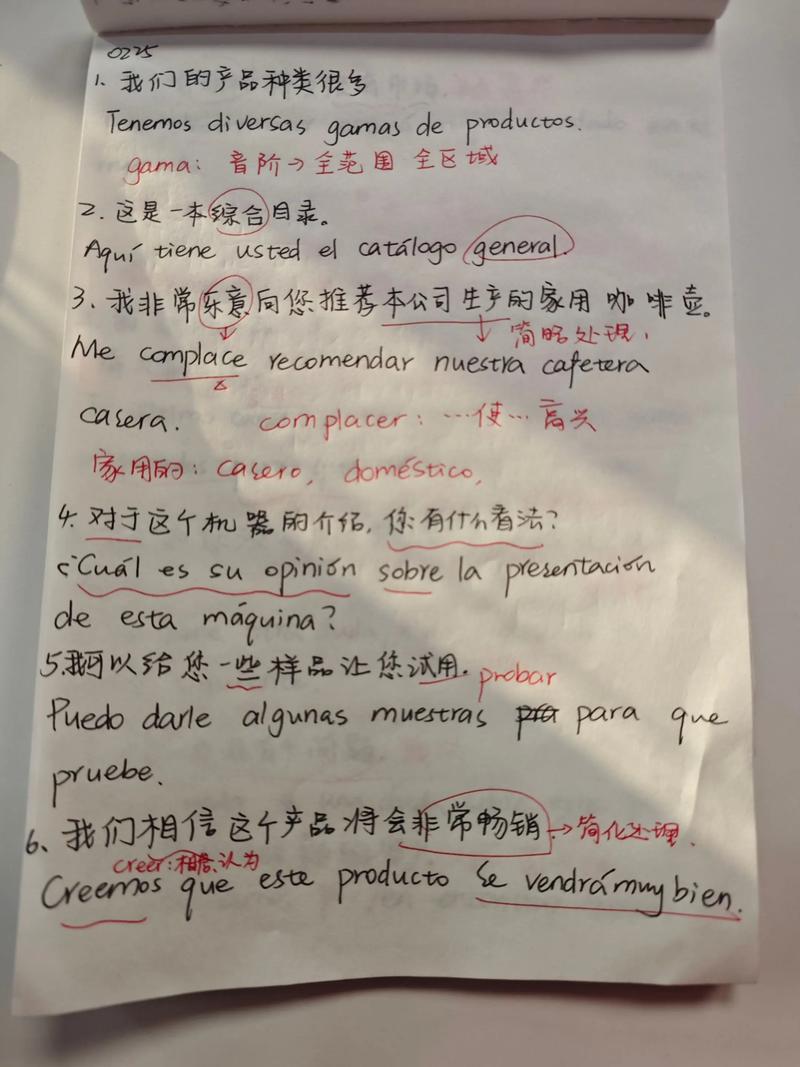 0225
1. 我们的产品种类很多
Tenemos diversas gamas de productos.
gama: 音阶→全范围 全区域
2. 这是一本综合目录。
Aquí tiene usted el catálogo general.
3、我非常乐意向您推荐本公司生产的家用咖啡壶。
简略处理.
Me complace recomendar nuestra cafetera
casera.
complacer: …使…高兴
家用的: casero, doméstico,
4. 对于这个机器的介绍, 您有什么看法?
¿Cuál es su opinión sobre la presentación
de esta máquina?
5.我可以给您一些样品让您试用. probar
Puedo darle algunas muestras para que
pruebe.
6、我们相信这个产品将会非常畅销→简化处理.
creer:相信、认为
Creemos que este producto se vendrá muy bien.